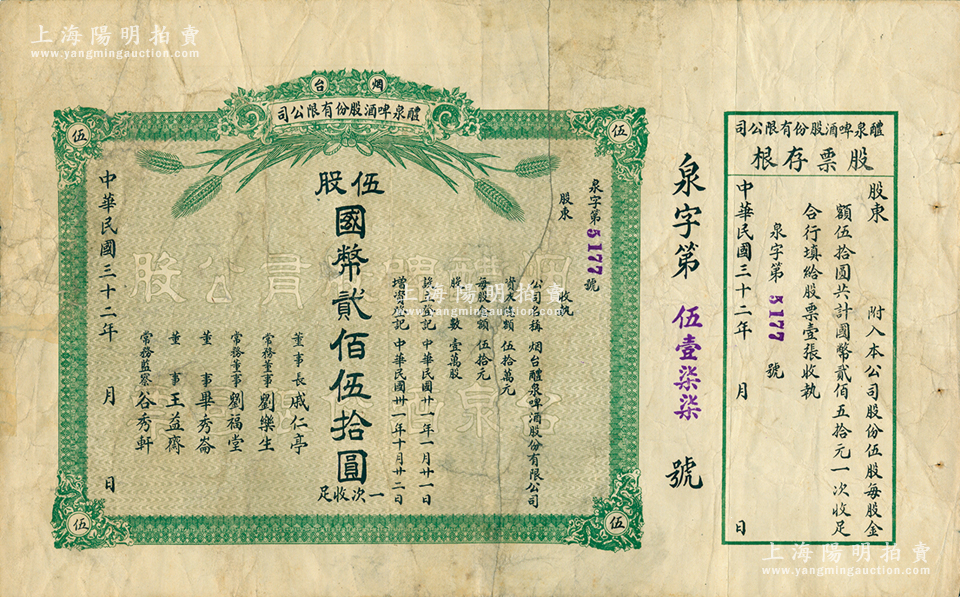 上海陽明拍賣
www.yangmingauction.com
烟台
醴泉啤酒股份有限公司
伍
伍
伍
伍
泉字第5177號
股東
收執
公司名稱 烟台醴泉啤酒股份有限公司
資本總額 伍拾萬元
每股金額 伍拾元
股數 壹萬股
設立登記 中華民國廿一年一月廿一日
增資登記 中華民國卅一年十月廿二日
伍股
國幣貳佰伍拾圓
一次收足
董事長戚仁亭
常務董事劉樂生
常務董事劉福堂
董事畢秀崙
董事王益齋
常務監察谷秀軒
中華民國三十二年 月 日
泉字第 伍壹柒柒 號
醴泉啤酒股份有限公司
股票存根
股東 附入本公司股份伍股每股金
額伍拾圓共計國幣貳佰五拾元一次收足
合行填給股票壹張收執
泉字第 5177 號
中華民國三十二年 月 日
上海陽明拍賣
www.yangmingauction.com
上海陽明拍賣
www.yangmingauction.com